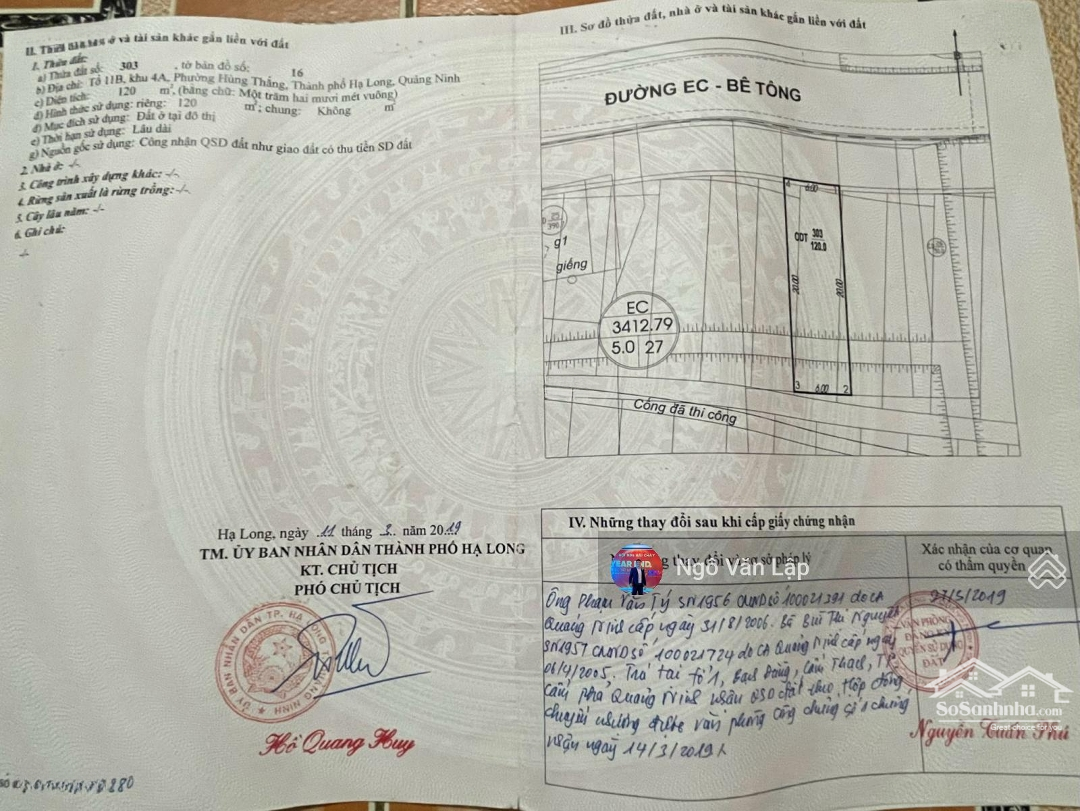 II. Thửa đất, nhà ở và tài sản khác gắn liền với đất
1. Thửa đất:
a) Thửa đất số: 303 , tờ bản đồ số: 16
b) Địa chỉ: Tổ 11B, khu 4A, Phường Hùng Thắng, Thành phố Hạ Long, Quảng Ninh
c) Diện tích: 120 m², (bằng chữ: Một trăm hai mươi mét vuông)
d) Hình thức sử dụng: riêng: 120 m²; chung: Không m²
đ) Mục đích sử dụng: Đất ở tại đô thị
e) Thời hạn sử dụng: Lâu dài
g) Nguồn gốc sử dụng: Công nhận QSD đất như giao đất có thu tiền SD đất
2. Nhà ở: -/-
3. Công trình xây dựng khác: -/-
4. Rừng sản xuất là rừng trồng: -/-
5. Cây lâu năm: -/-
6. Ghi chú:
-/-
Hạ Long, ngày 11 tháng 3 năm 2019
TM. ỦY BAN NHÂN DÂN THÀNH PHỐ HẠ LONG
KT. CHỦ TỊCH
PHÓ CHỦ TỊCH
ỦY BAN NHÂN DÂN TP. HẠ LONG
Hồ Quang Huy
III. Sơ đồ thửa đất, nhà ở và tài sản khác gắn liền với đất
ĐƯỜNG EC - BÊ TÔNG
4 6.00 1
ODT 303
120.0
20.00 20.00
3 6.00 2
390
g1
giếng
EC
3412.79
5.0 27
Cống đã thi công
IV. Những thay đổi sau khi cấp giấy chứng nhận
thay đổi và cơ sở pháp lý
Xác nhận của cơ quan
có thẩm quyền
YEAR END
Ngô Văn Lập
Ông Phạm Văn Tý SN1956 CMND số 100021391 do CA
Quảng Ninh cấp ngày 31/8/2006. Bà Bùi Thị Nguyên
SN1957 CMND số 100021724 do CA Quảng Ninh cấp ngày
06/4/2005. Trú tại tổ 1, Cẩm Thạch, TP
Cẩm Phả Quảng Ninh nhận QSD đất theo Hợp đồng
chuyển nhượng được văn phòng công chứng số 1 chứng
nhận ngày 14/3/2019
27/5/2019
VĂN PHÒNG
ĐĂNG KÝ
QUYỀN SỬ DỤNG
ĐẤT
SoSanhnha.com
Nguyễn Tuấn Phú